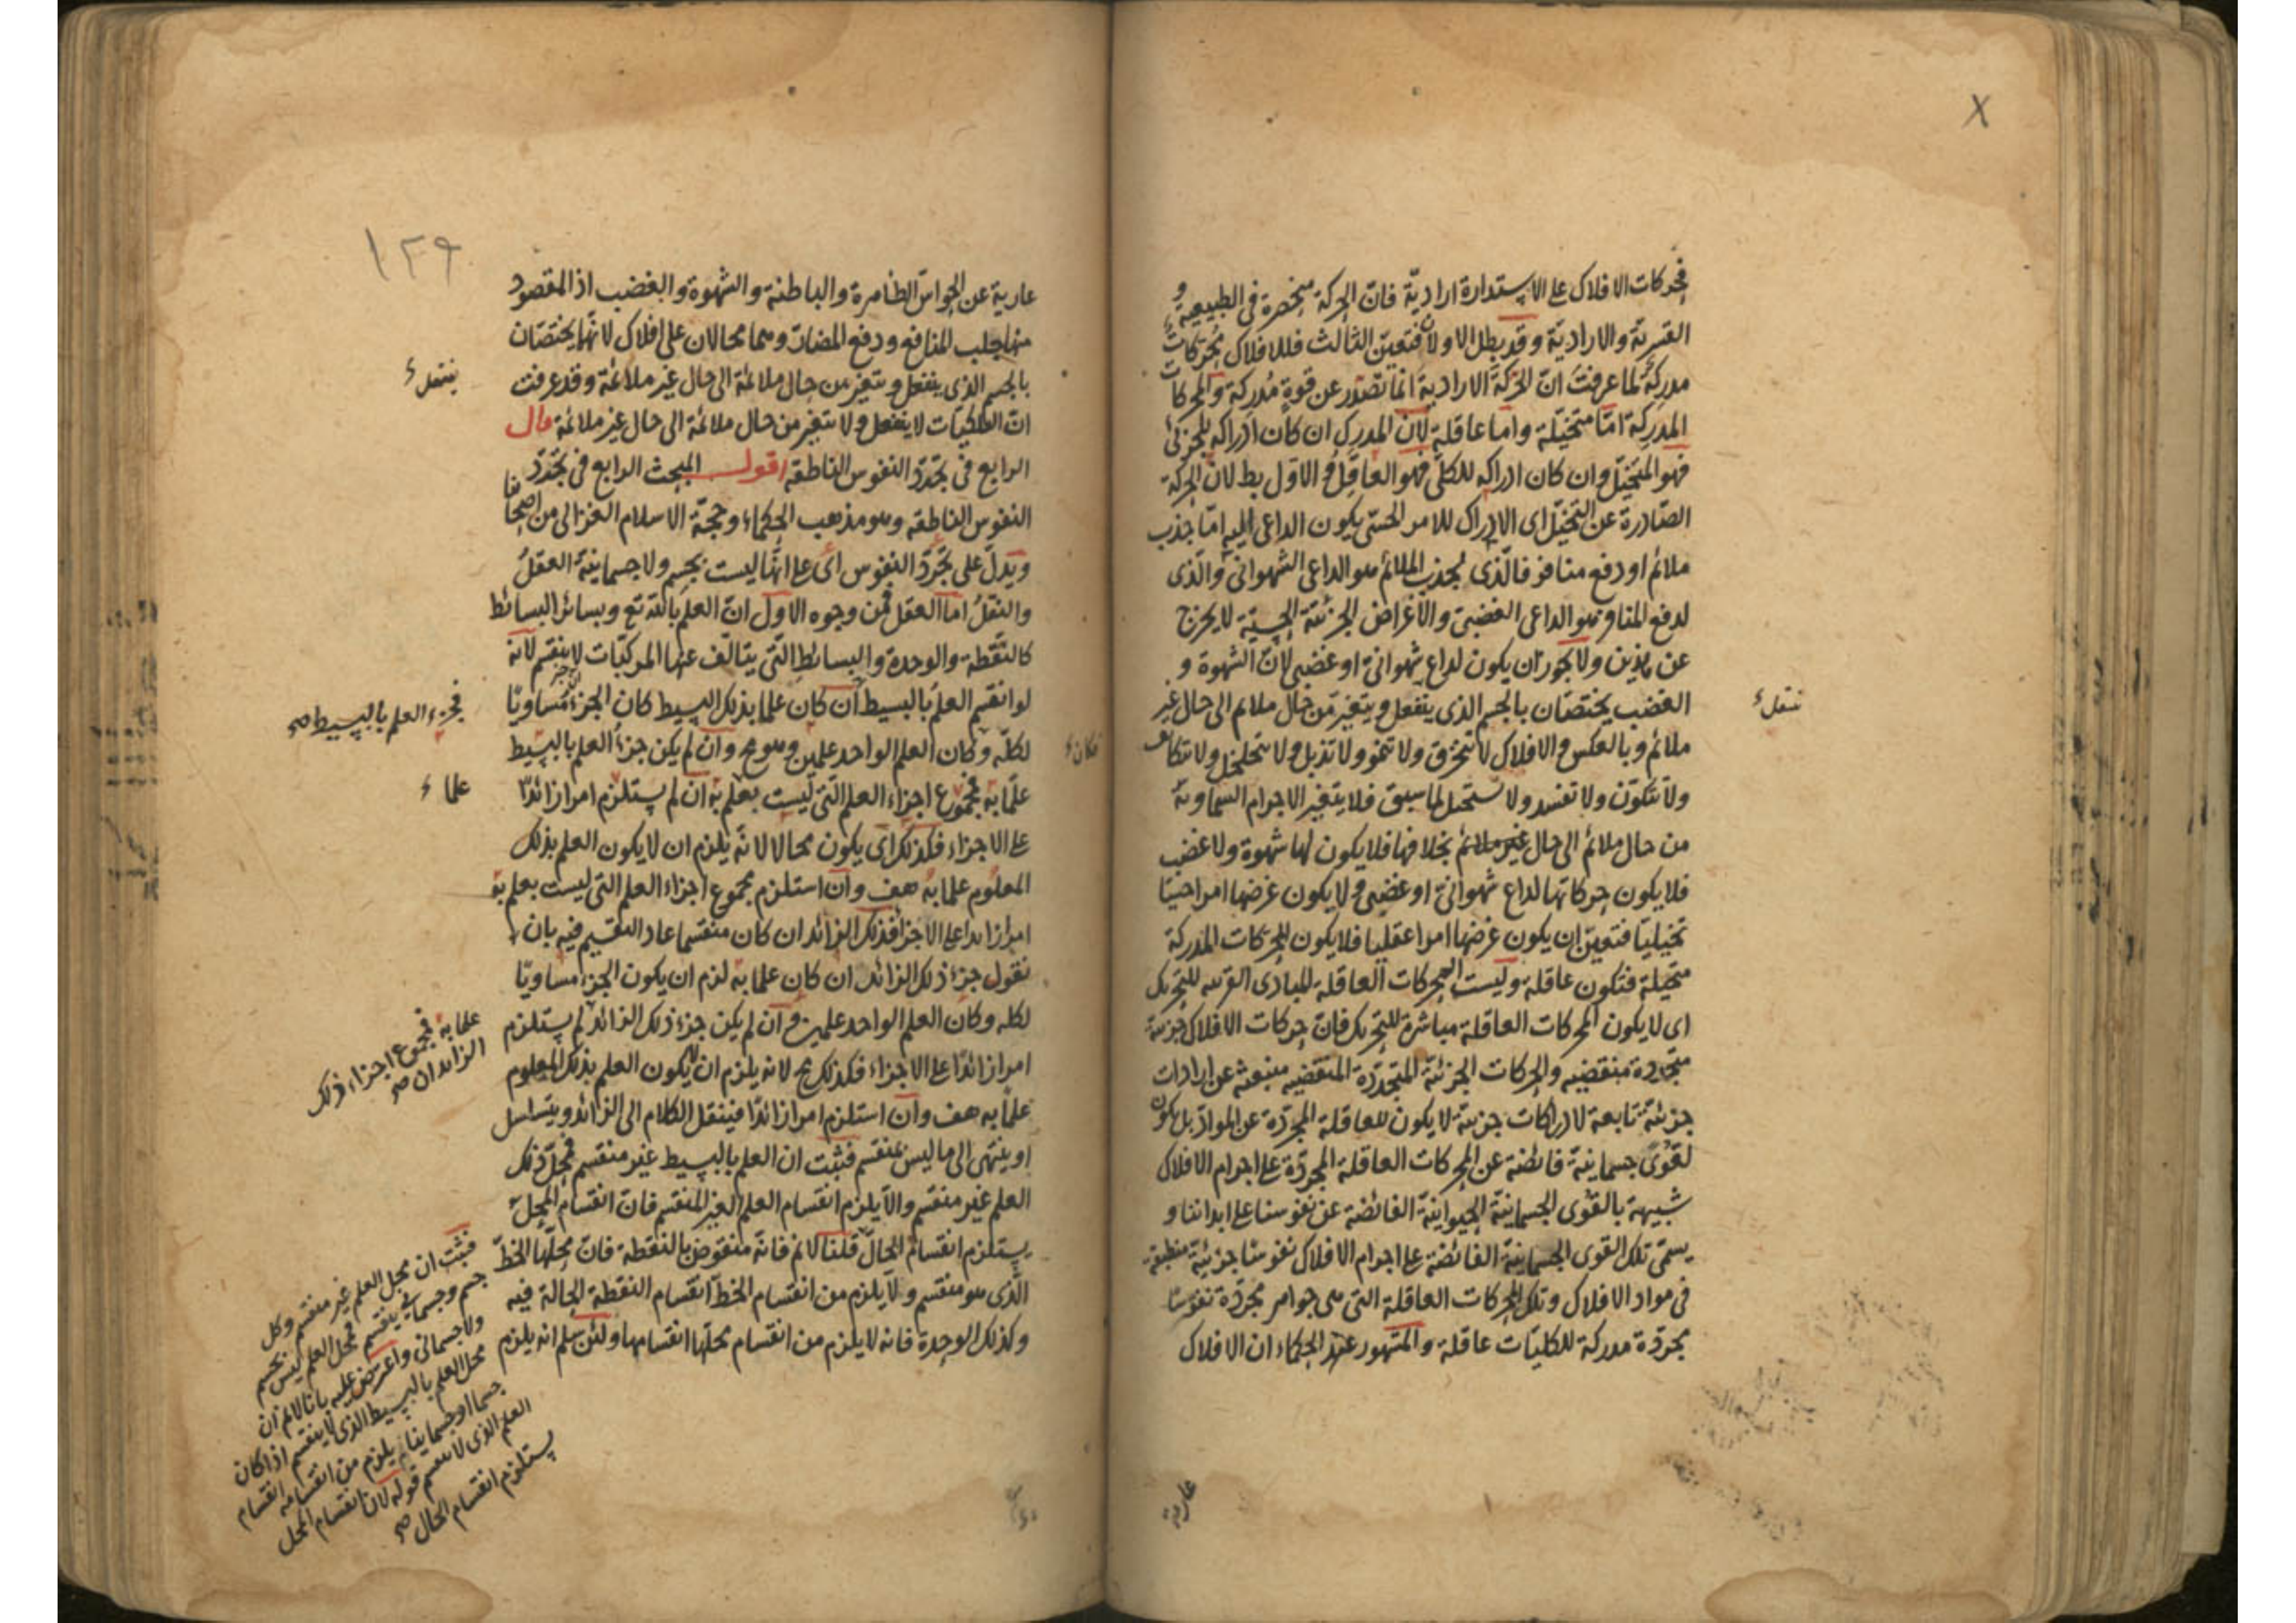 فحركات الافلاك على الاستدارة ارادية فان الحركة منحصرة فى الطبيعية و
القسرية والارادية وقد بطل الاولان فتعين الثالث فللافلاك محركات
مدركة لما عرفت ان الحركة الارادية انما تصدر عن قوة مدركة والمحركات
المدركة اما متخيلة واما عاقلة لان المدرك ان كان ادراكه للجزئى
فهو المتخيل وان كان ادراكه للكلى فهو العاقل والاول بط لان الحركة
الصادرة عن التخيل اى الادراك للامر الحسى يكون الداعى اليه اما جذب
ملائم او دفع منافر فالذى لجذب الملائم هو الداعى الشهوانى والذى
لدفع المنافر هو الداعى الغضبى والاغراض الجزئية الحسية لا يخرج
عن هذين ولا يجوز ان يكون لداع شهوانى او غضبى لان الشهوة و
الغضب يختصان بالجسم الذى ينفعل ويتغير من حال ملائم الى حال غير
ملائم وبالعكس والافلاك لا تتخرق ولا تنمو ولا تذبل ولا تتخلخل ولا تتكاثف
ولا تتكون ولا تفسد ولا تستحيل لما سبق فلا يتغير الاجرام السماوية
من حال ملائم الى حال غير ملائم بخلافها فلا يكون لها شهوة ولا غضب
فلا يكون حركاتها لداع شهوانى او غضبى ولا يكون غرضها امرا حسيا
تخيليا فتعين ان يكون غرضها امرا عقليا فلا يكون المحركات المدركة
متخيلة فتكون عاقلة وليست المحركات العاقلة المبادى القريبة للتحريك
اى لا يكون المحركات العاقلة مباشرة للتحريك فان حركات الافلاك جزئية
متجددة منقضيه والحركات الجزئية المتجددة المنقضيه منبعثه عن ارادات
جزئية تابعة لادراكات جزئية لا يكون للعاقلة المجردة عن المواد بل يكون
لقوى جسمانية فائضة عن المحركات العاقلة المجردة على اجرام الافلاك
شبيهة بالقوى الجسمانية الحيوانية الفائضة عن نفوسنا على ابداننا و
يسمى تلك القوى الجسمانية الفائضة على اجرام الافلاك نفوسا جزئية منطبعة
فى مواد الافلاك وتلك المحركات العاقلة التى هى جواهر مجردة نفوسا
مجردة مدركة للكليات عاقلة والمشهور عند الحكماء ان الافلاك
عارية
١٢٩
عارية عن الحواس الظاهرة والباطنة والشهوة والغضب اذ المقصود
منها جلب المنافع ودفع المضار وهما محالان على افلاك لانهما يختصان
بالجسم الذى ينفعل ويتغير من حال ملائمة الى حال غير ملائمة وقد عرفت
ان الفلكيات لا ينفعل ولا يتغير من حال ملائمة الى حال غير ملائمة قال
الرابع فى تجرد النفوس الناطقة اقول المبحث الرابع فى تجرد
النفوس الناطقه وهو مذهب الحكماء وحجة الاسلام الغزالى من اصحابنا
ويدل على تجرد النفوس اى على انها ليست بجسم ولا جسمانية العقل
والنقل اما العقل فمن وجوه الاول ان العلم بالله تع وبسائر البسائط
كالنقطة والوحدة والبسائط التى يتالف عنها المركبات لا ينقسم لانه
لو انقسم العلم بالبسيط ان كان علما بذلك البسيط كان الجزء مساويا
فجزء العلم بالبسيط صح
لكله وكان العلم الواحد علمين وهو مح وان لم يكن جزء العلم بالبسيط
علما به فمجموع اجزاء العلم التى ليست بعلم به ان لم يستلزم امرا زائدا
على الاجزاء فكذلك اى يكون محالا لانه يلزم ان لا يكون العلم بذلك
المعلوم علما به هف وان استلزم مجموع اجزاء العلم التى ليست بعلم به
امرا زائدا على الاجزاء فذلك الزائد ان كان منقسما عاد التقسيم فيه بان
نقول جزء ذلك الزائد ان كان علما به لزم ان يكون الجزء مساويا
لكله وكان العلم الواحد علمين وان لم يكن جزء ذلك الزائد لم يستلزم
علما به فمجموع اجزاء ذلك
الزائد ان صح
امرا زائدا على الاجزاء فكذلك مح لانه يلزم ان لا يكون العلم بذلك المعلوم
علما به هف وان استلزم امرا زائدا فينقل الكلام الى الزائد ويتسلسل
او ينتهى الى ما ليس بمنقسم فثبت ان العلم بالبسيط غير منقسم فمحل ذلك
العلم غير منقسم والا يلزم انقسام العلم الغير المنقسم فان انقسام المحل
يستلزم انقسام الحال قلنا لا نم فانه منقوض بالنقطة فان محلها الخط
الذى هو منقسم ولا يلزم من انقسام الخط انقسام النقطة الحالة فيه
وكذلك الوحدة فانه لا يلزم من انقسام محلها انقسامها ولئن سلم انه يلزم
فثبت ان محل العلم غير منقسم وكل
جسم وجسمانى ينقسم فمحل العلم ليس بجسم
ولا جسمانى واعترض عليه بانا لا نم ان
محل العلم بالبسيط الذى لا ينقسم اذا كان
جسما او جسمانيا يلزم من انقسامه انقسام
العلم الذى لا ينقسم قوله لان انقسام المحل
يستلزم انقسام الحال صح